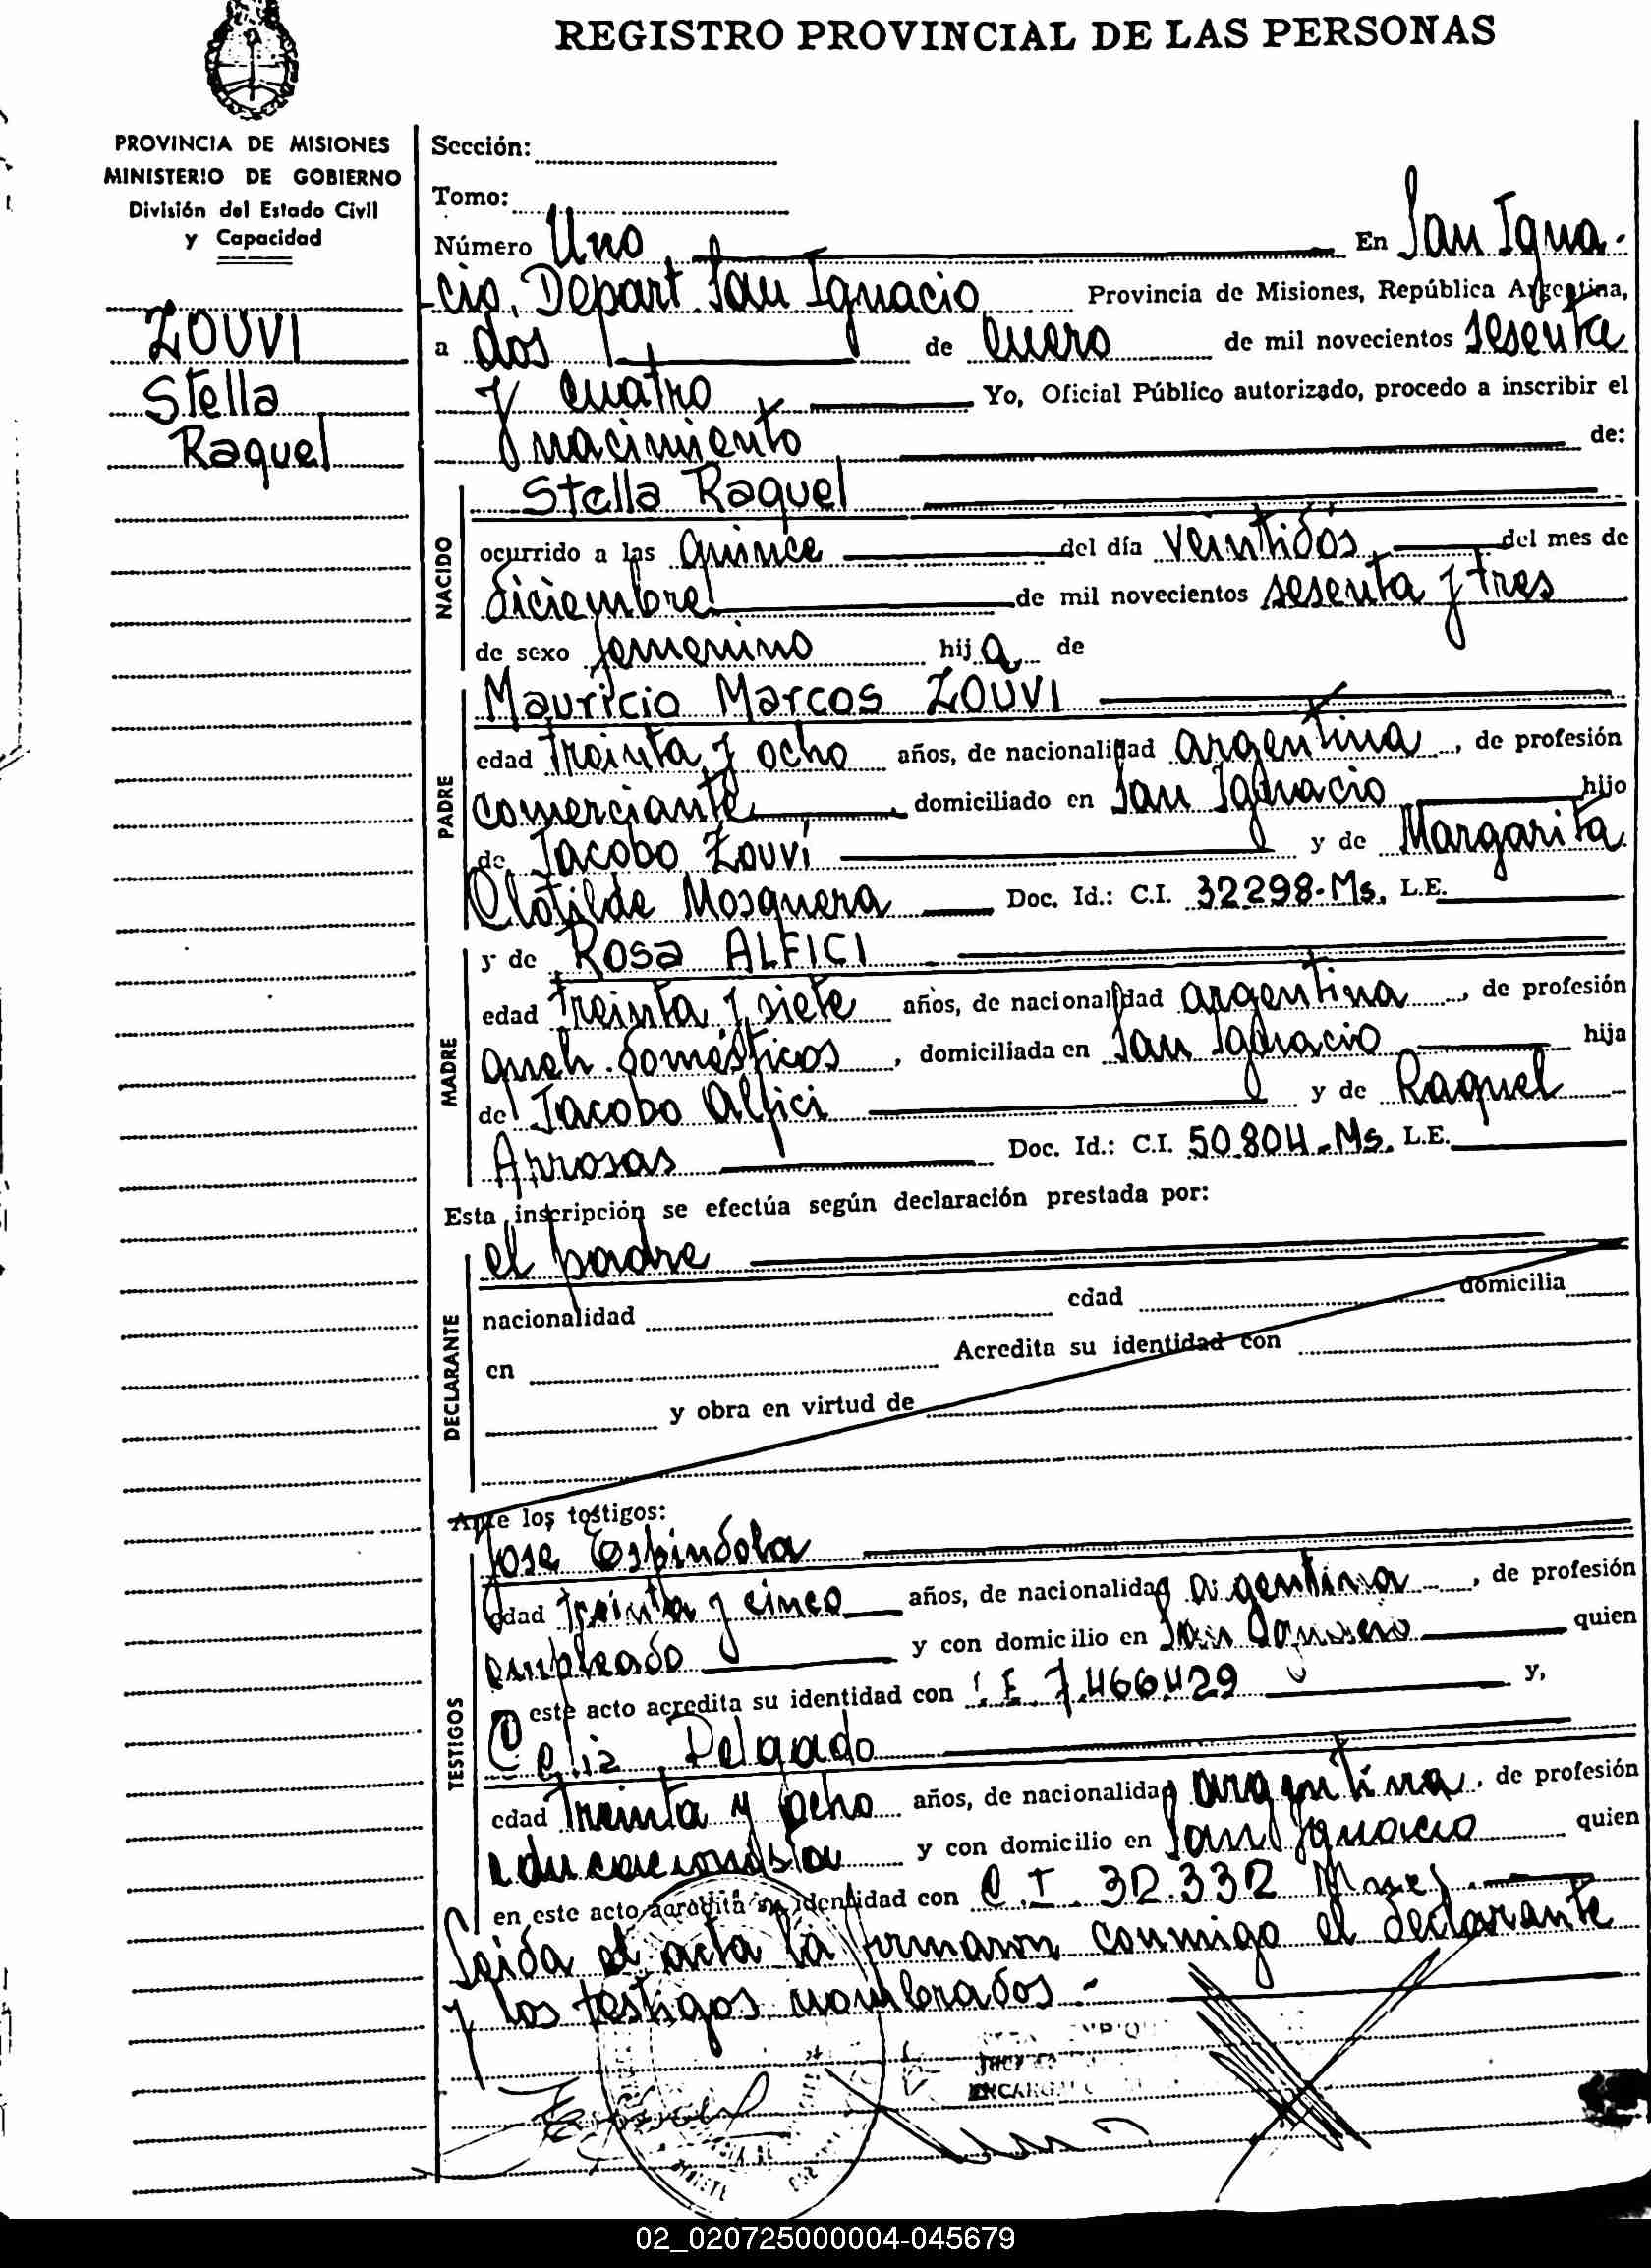 REGISTRO PROVINCIAL DE LAS PERSONAS
PROVINCIA DE MISIONES
MINISTERIO DE GOBIERNO
División del Estado Civil
y Capacidad
ZOUVI
Stella
Raquel
Sección:
Tomo:
Número Uno En San Igna-
cio, Depart. San Ignacio Provincia de Misiones, República Argentina,
a dos de Enero de mil novecientos sesenta
y cuatro Yo, Oficial Público autorizado, procedo a inscribir el
nacimiento de:
NACIDO
Stella Raquel
ocurrido a las quince del día veintidós del mes de
diciembre de mil novecientos sesenta y tres
de sexo femenino hija de
PADRE
Mauricio Marcos ZOUVI
edad treinta y ocho años, de nacionalidad argentina, de profesión
comerciante, domiciliado en San Ignacio hijo
de Jacobo Zouvi y de Margarita
Clotilde Mosquera Doc. Id.: C.I. 32298-Ms. L.E.
MADRE
y de Rosa ALFICI
edad treinta y siete años, de nacionalidad argentina, de profesión
queh. domésticos, domiciliada en San Ignacio hija
de Jacobo Alfici y de Raquel
Arrosas Doc. Id.: C.I. 50.804-Ms. L.E.
Esta inscripción se efectúa según declaración prestada por:
DECLARANTE
el padre
nacionalidad edad domicilia
en Acredita su identidad con
y obra en virtud de
Ante los testigos:
TESTIGOS
Jose Espíndola
edad treinta y cinco años, de nacionalidad argentina, de profesión
empleado y con domicilio en San Ignacio quien
este acto acredita su identidad con L.E. 7.466.429 y,
Celia Delgado
edad treinta y ocho años, de nacionalidad argentina, de profesión
educacionista y con domicilio en San Ignacio quien
en este acto acredita su identidad con C.I. 32.332 Mnes.
Leída el acta la firmaron conmigo el declarante
y los testigos nombrados.-
02_020725000004-045679